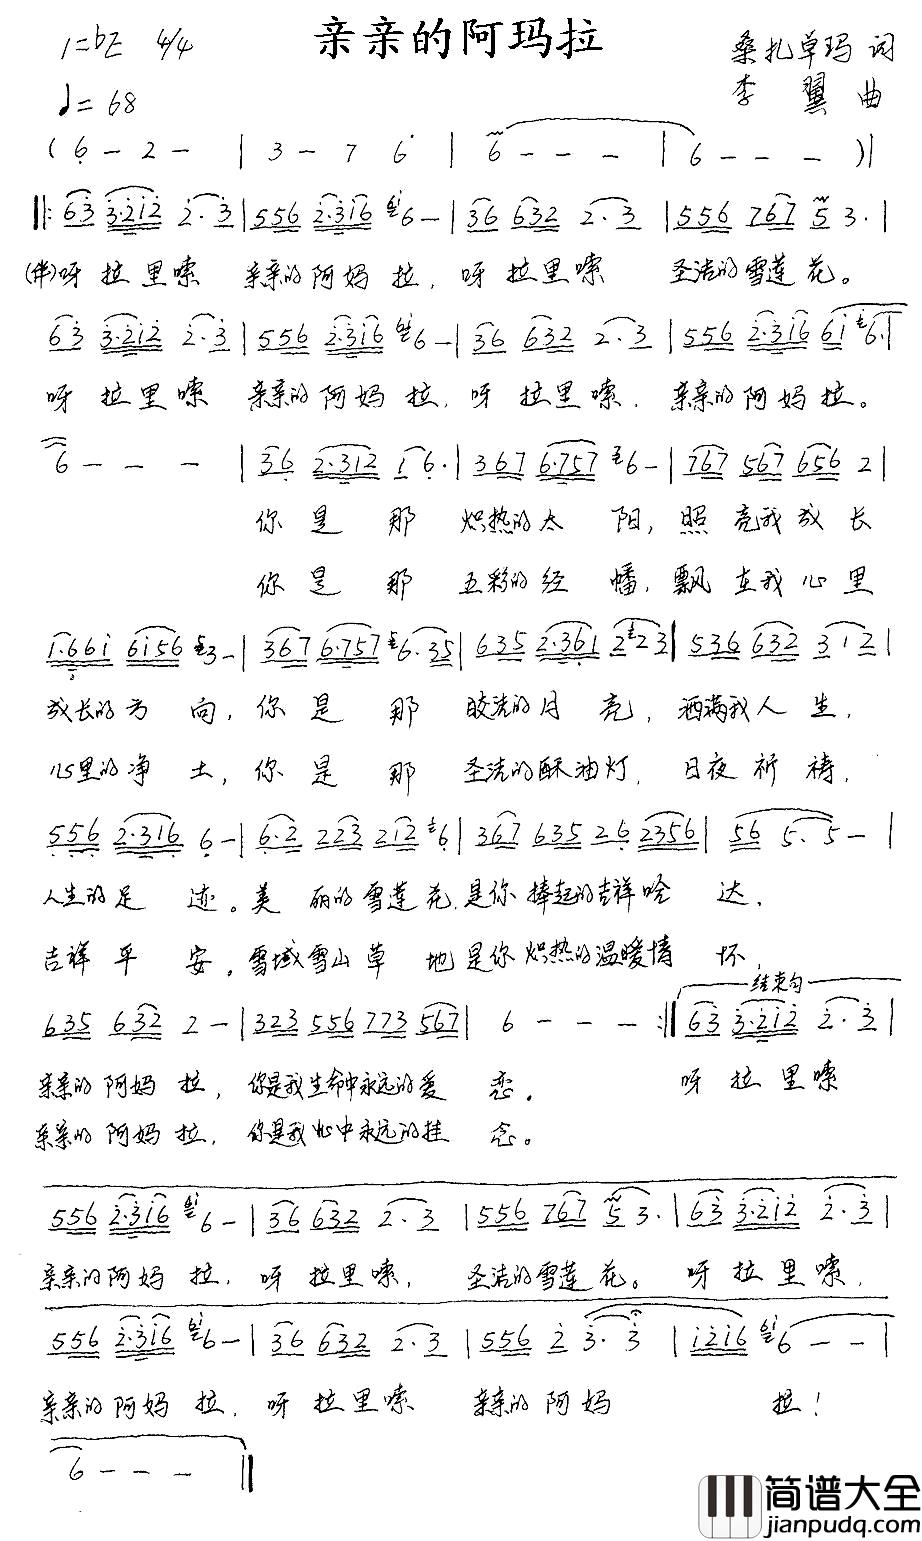 1=bE 4/4 亲亲的阿玛拉 桑扎卓玛 词
♩=68 李翼 曲
(6 - 2 - | 3 - 7 6 | 6 - - - | 6 - - - )|
‖: 63 3·212 2·3 | 556 2·316 6 - | 36 632 2·3 | 556 767 5 3· |
(伴)呀拉里嗦 亲亲的阿妈拉，呀拉里嗦 圣洁的雪莲花。
63 3·212 2·3 | 556 2·316 6 - | 36 632 2·3 | 556 2·316 61 6· |
呀拉里嗦 亲亲的阿妈拉，呀拉里嗦，亲亲的阿妈拉。
6 - - - | 36 2·312 16· | 367 6·757 6 - | 767 567 656 2 |
你是那炽热的太阳，照亮我成长
你是那五彩的经幡，飘在我心里
1·661 6156 3 - | 367 6·757 6·35 | 635 2·361 223 | 536 632 312 |
成长的方向，你是那皎洁的月亮，洒满我人生，
心里的净土，你是那圣洁的酥油灯，日夜祈祷，
556 2·316 6 - | 6·2 223 212 6 | 367 635 26 2356 | 56 5·5 - |
人生的足迹。美丽的雪莲花，是你捧起的吉祥哈达，
吉祥平安。雪域雪山草地是你炽热的温暖情怀，
结束句
635 632 2 - | 323 556 773 567 | 6 - - - :‖ 63 3·212 2·3 |
亲亲的阿妈拉，你是我生命中永远的爱恋。 呀拉里嗦
亲亲的阿妈拉，你是我心中永远的挂念。
556 2·316 6 - | 36 632 2·3 | 556 767 5 3· | 63 3·212 2·3 |
亲亲的阿妈拉，呀拉里嗦，圣洁的雪莲花。呀拉里嗦，
556 2·316 6 - | 36 632 2·3 | 556 2 3·3 | 1216 6 - - |
亲亲的阿妈拉，呀拉里嗦 亲亲的阿妈 拉！
6 - - - ‖
简谱大全
jianpudq.com